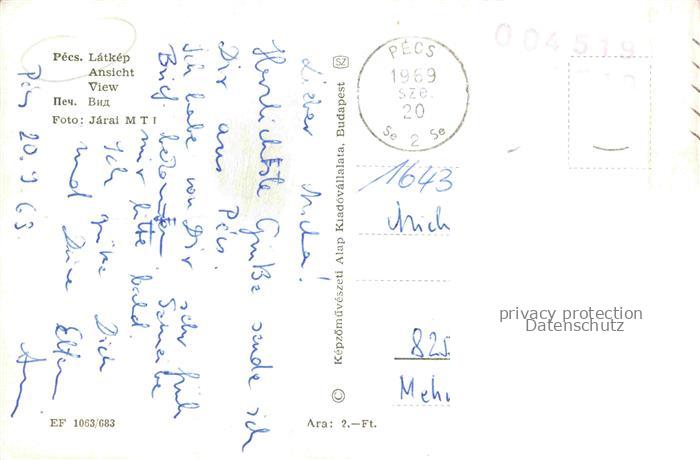 Pécs. Látkép
Ansicht
View
Печ. Вид
Foto: Járai MTI
Pécs 20.9.69.
Lieber Micha!
Herzlichste Grüße sende ich
Dir aus Pécs.
Ich habe von Dir sehr früh
Brief bekommen. Schreibe
mir bitte bald.
Ich grüße Dich
und Deine Eltern
© Képzőművészeti Alap Kiadóvállalata, Budapest
SZ
PÉCS
1969
SZE.
20
Se 2 Se
004519
1643
Mich
825
Meh
privacy protection
Datenschutz
EF 1063/683
Ára: 2.—Ft.